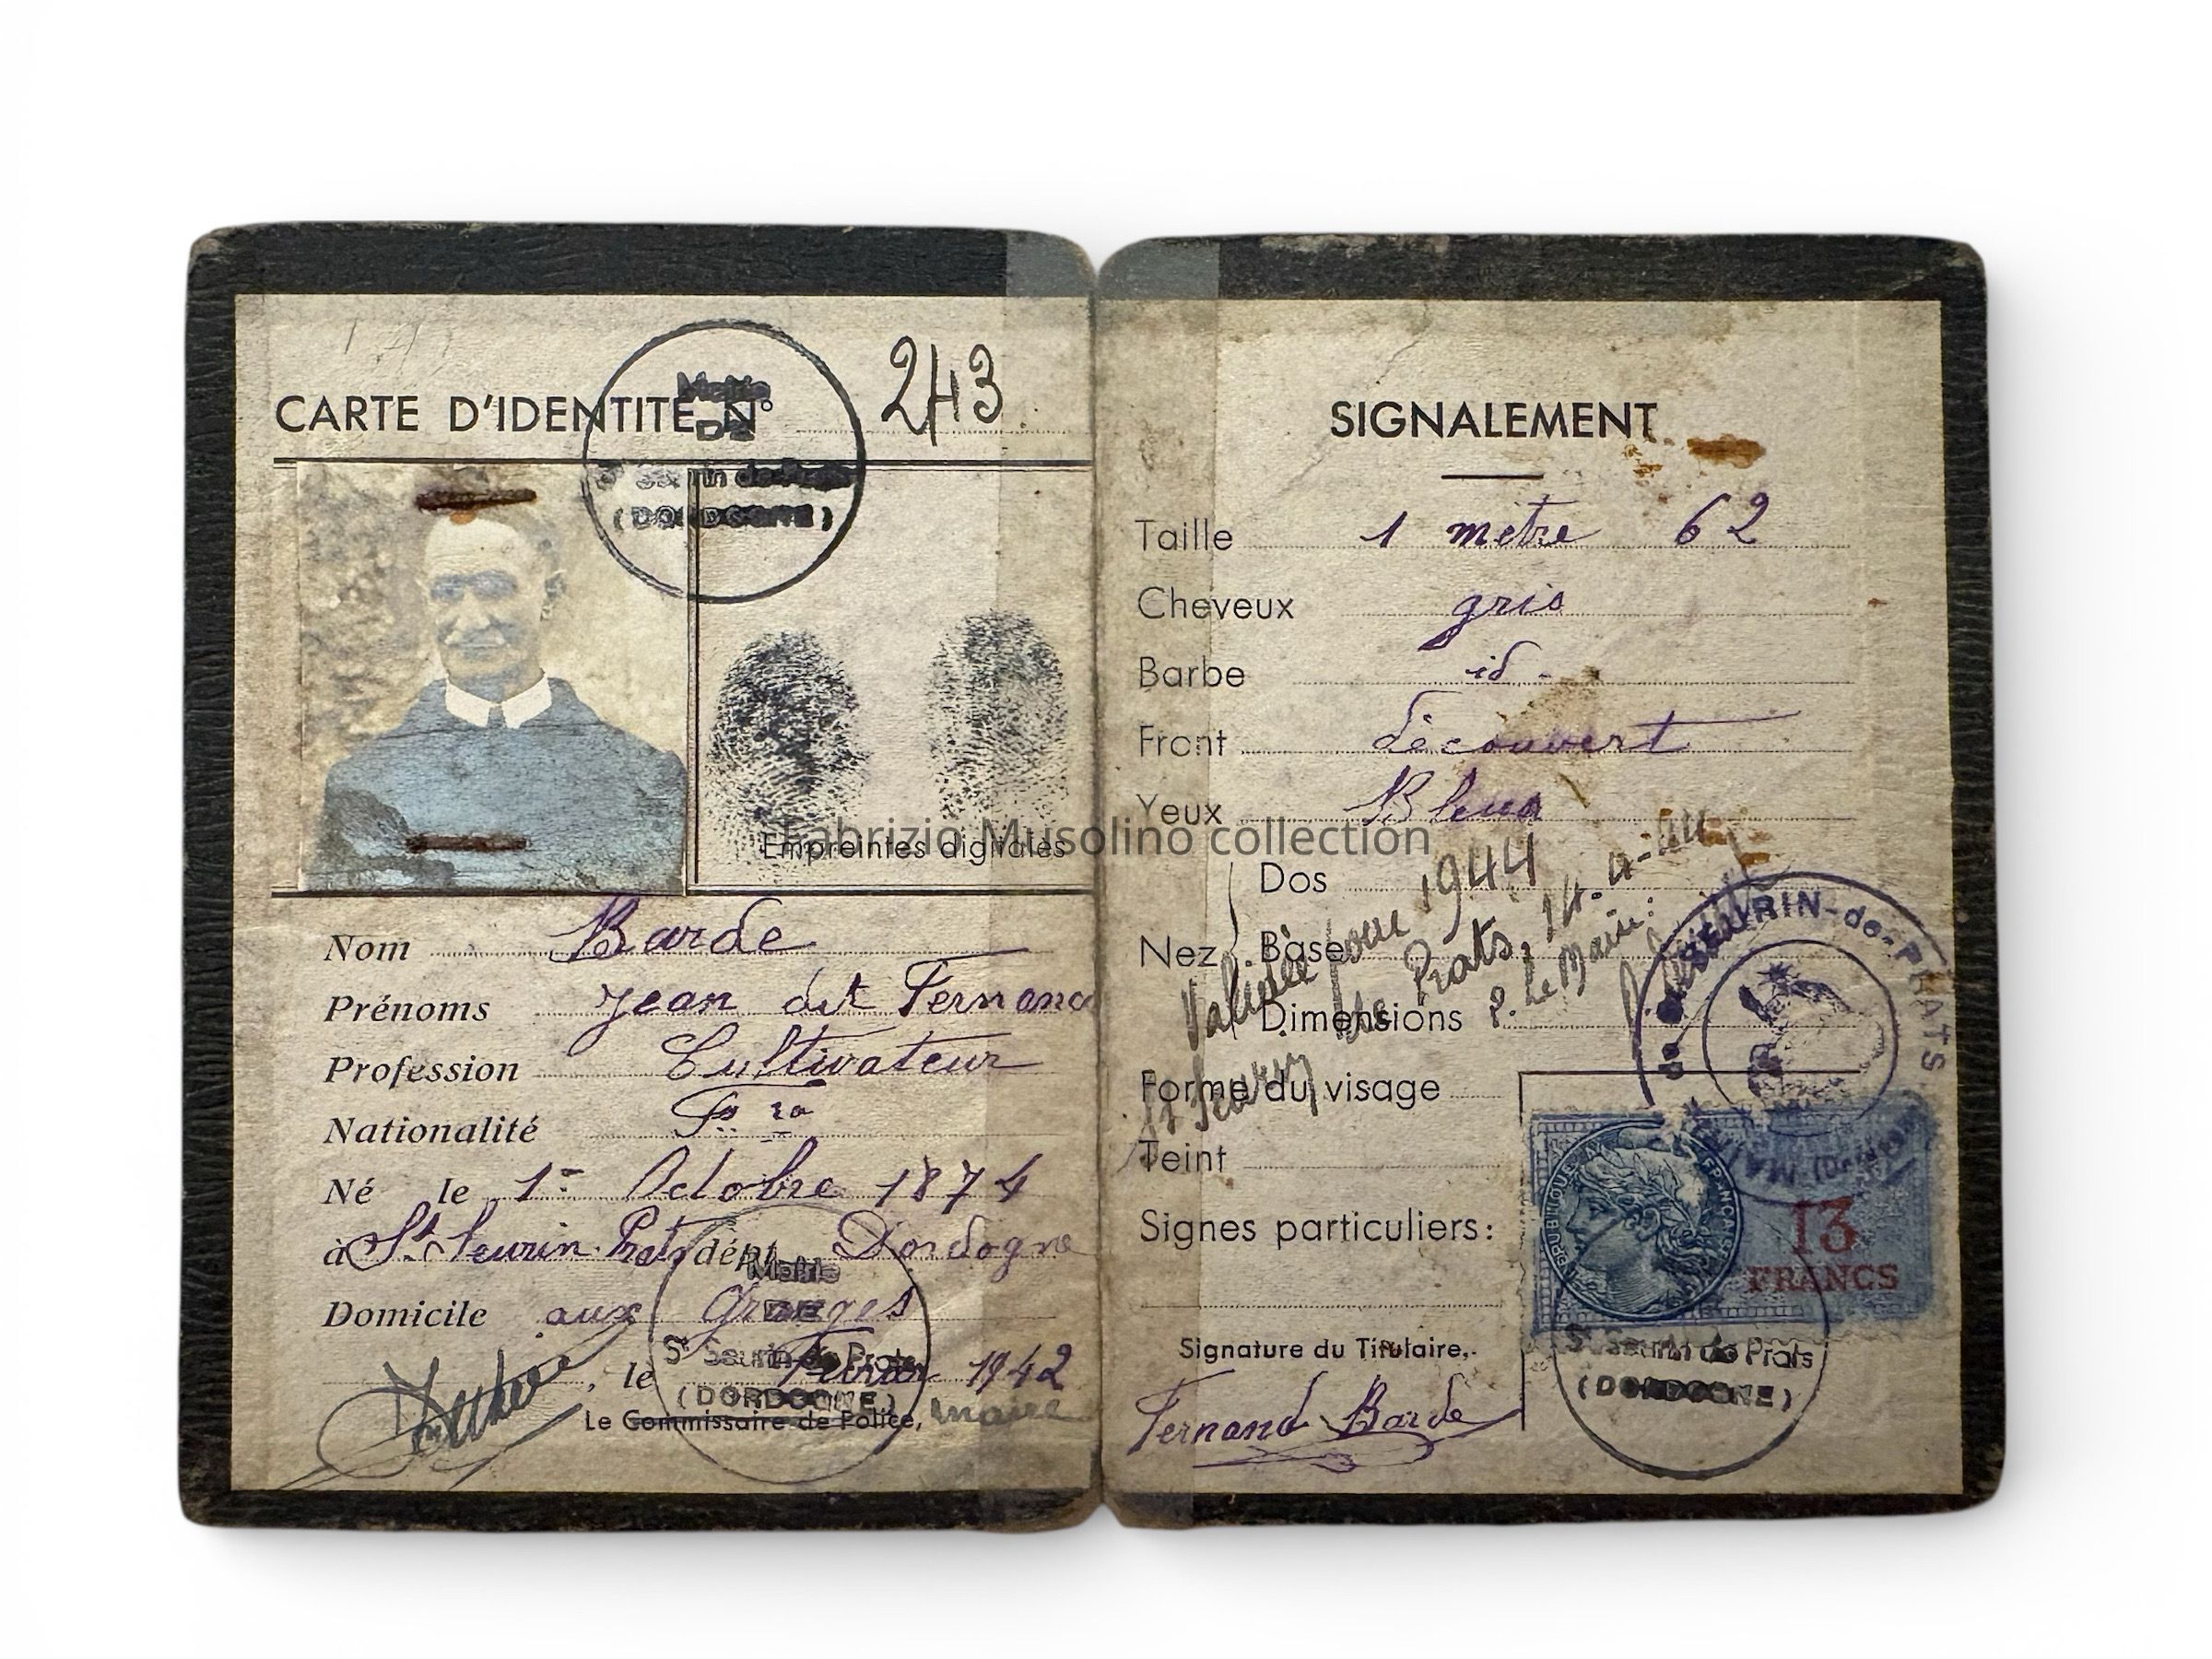 CARTE D'IDENTITE N° 243
Mairie
DE
St Seurin de Prats
(DORDOGNE)
Empreintes digitales
Nom Barde
Prénoms Jean dit Fernand
Profession Cultivateur
Nationalité Fse
Né le 1er Octobre 1874
à St Seurin Prats dépt Dordogne
Domicile aux Granges
, le Février 1942
Le Commissaire de Police, maire
Mairie
DE
St Seurin de Prats
(DORDOGNE)
SIGNALEMENT
Taille 1 mètre 62
Cheveux gris
Barbe id.
Front découvert
Yeux Bleus
Nez
Dos
Base
Dimensions
Validée pour 1944
St Seurin de Prats, 14-4-44
P. Le Maire:
Forme du visage
Teint
Signes particuliers:
SEURIN-de-PRATS
MAIRIE
RÉPUBLIQUE FRANÇAISE
13
FRANCS
St Seurin de Prats
(DORDOGNE)
Signature du Titulaire,
Fernand Barde
Fabrizio Musolino collection